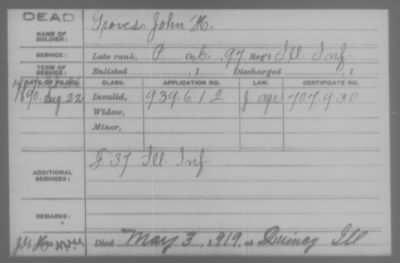 DEAD
NAME OF SOLDIER: Groves, John H.
SERVICE: Late rank, P Co. C, 97 Reg't Ill. Inf.
TERM OF SERVICE: Enlisted , 1 Discharged , 1
CLASS. APPLICATION NO. LAW. CERTIFICATE NO.
1890, Aug 22 Invalid, 939.612 J age 707.930
Widow,
Minor,
ADDITIONAL SERVICES: F 37 Ill Inf
REMARKS:
Died May 3, 1919, at Quincy Ill